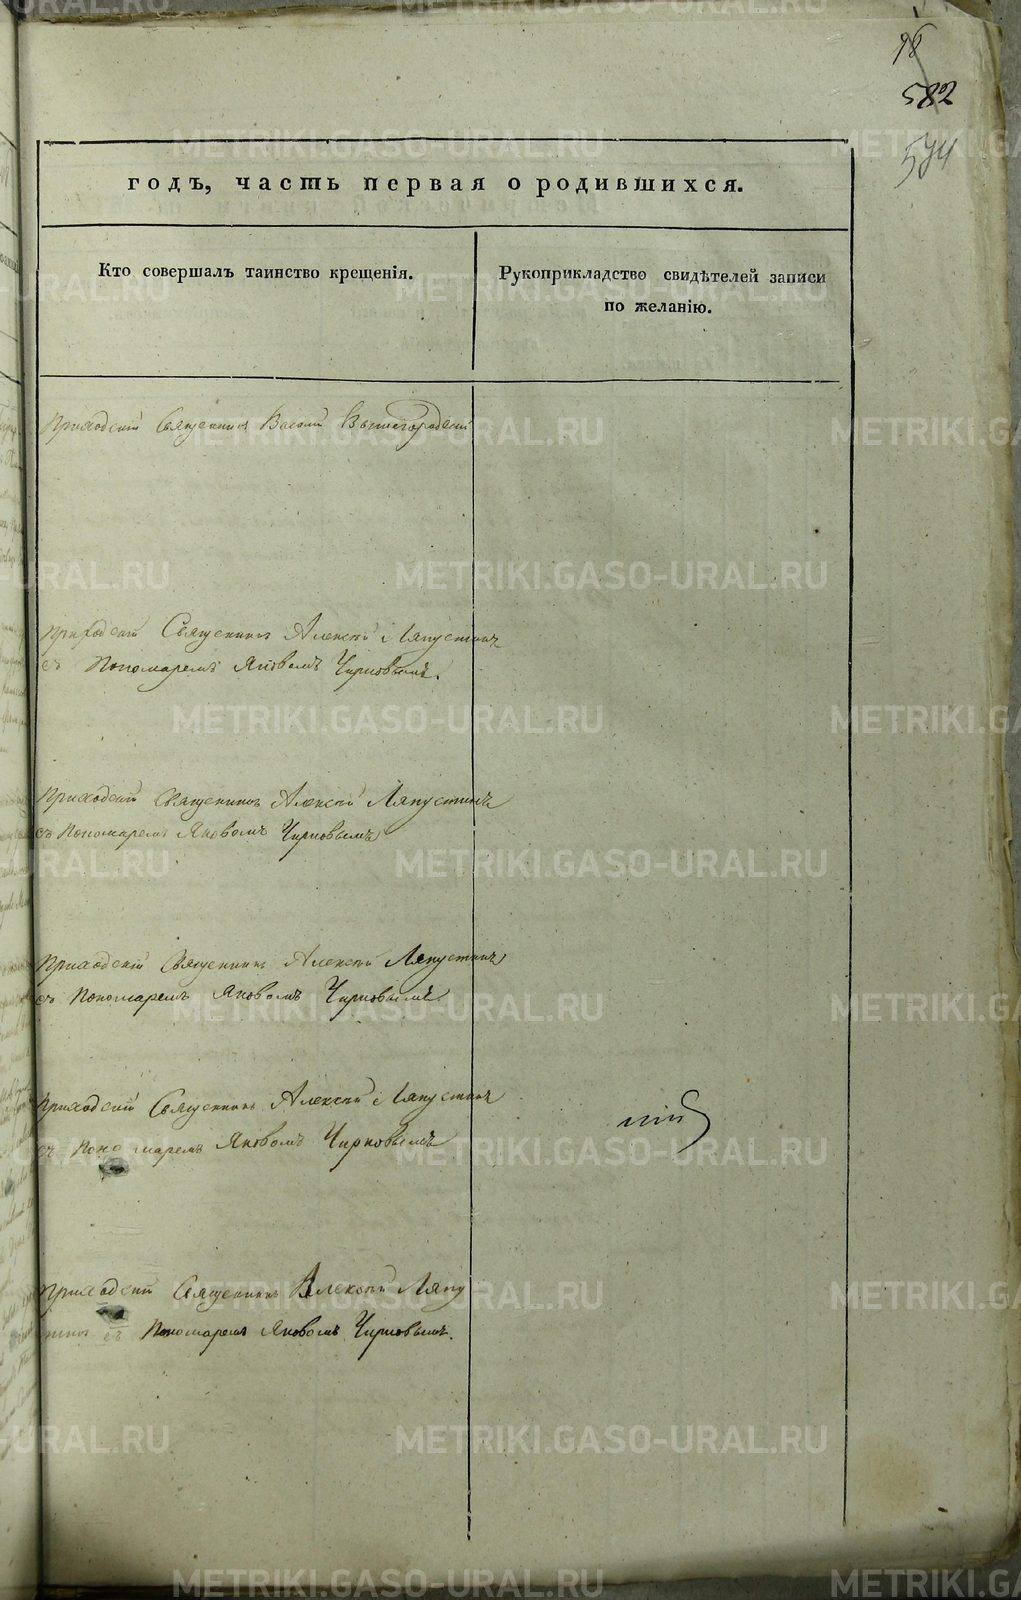 98
582
574
годъ, часть первая о родившихся.
Кто совершалъ таинство крещенія.
Рукоприкладство свидѣтелей записи
по желанію.
Приходскій Священникъ Василій Вышегородскій
Приходскій Священникъ Алексѣй Ляпустинъ
съ Пономаремъ Яковомъ Чирковымъ.
Приходскій Священникъ Алексѣй Ляпустинъ
съ Пономаремъ Яковомъ Чирковымъ
Приходскій Священникъ Алексѣй Ляпустинъ
съ Пономаремъ Яковомъ Чирковымъ.
Приходскій Священникъ Алексѣй Ляпустинъ
съ Пономаремъ Яковомъ Чирковымъ
Приходскій Священникъ Алексѣй Ляпу
стинъ съ Пономаремъ Яковомъ Чирковымъ.
METRIKI.GASO-URAL.RU